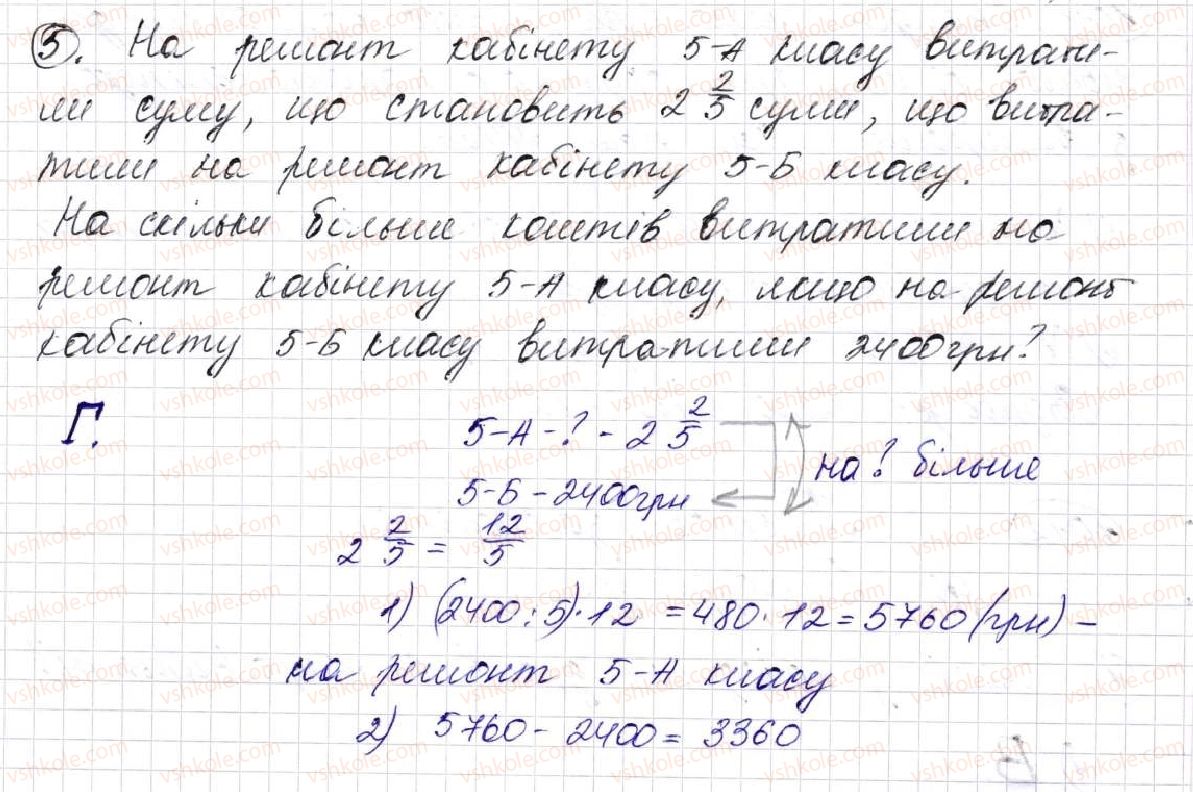 5. На ремонт кабінету 5-А класу витрати-
ли суму, що становить 2 2/5 суми, що витра-
тили на ремонт кабінету 5-Б класу.
На скільки більше коштів витратили на
ремонт кабінету 5-А класу, якщо на ремонт
кабінету 5-Б класу витратили 2400грн?
Г.
5-А - ? - 2 2/5
на ? більше
5-Б - 2400грн
2 2/5 = 12/5
1) (2400:5)·12 = 480·12 = 5760 (грн) -
на ремонт 5-А класу
2) 5760 - 2400 = 3360
vshkole.com